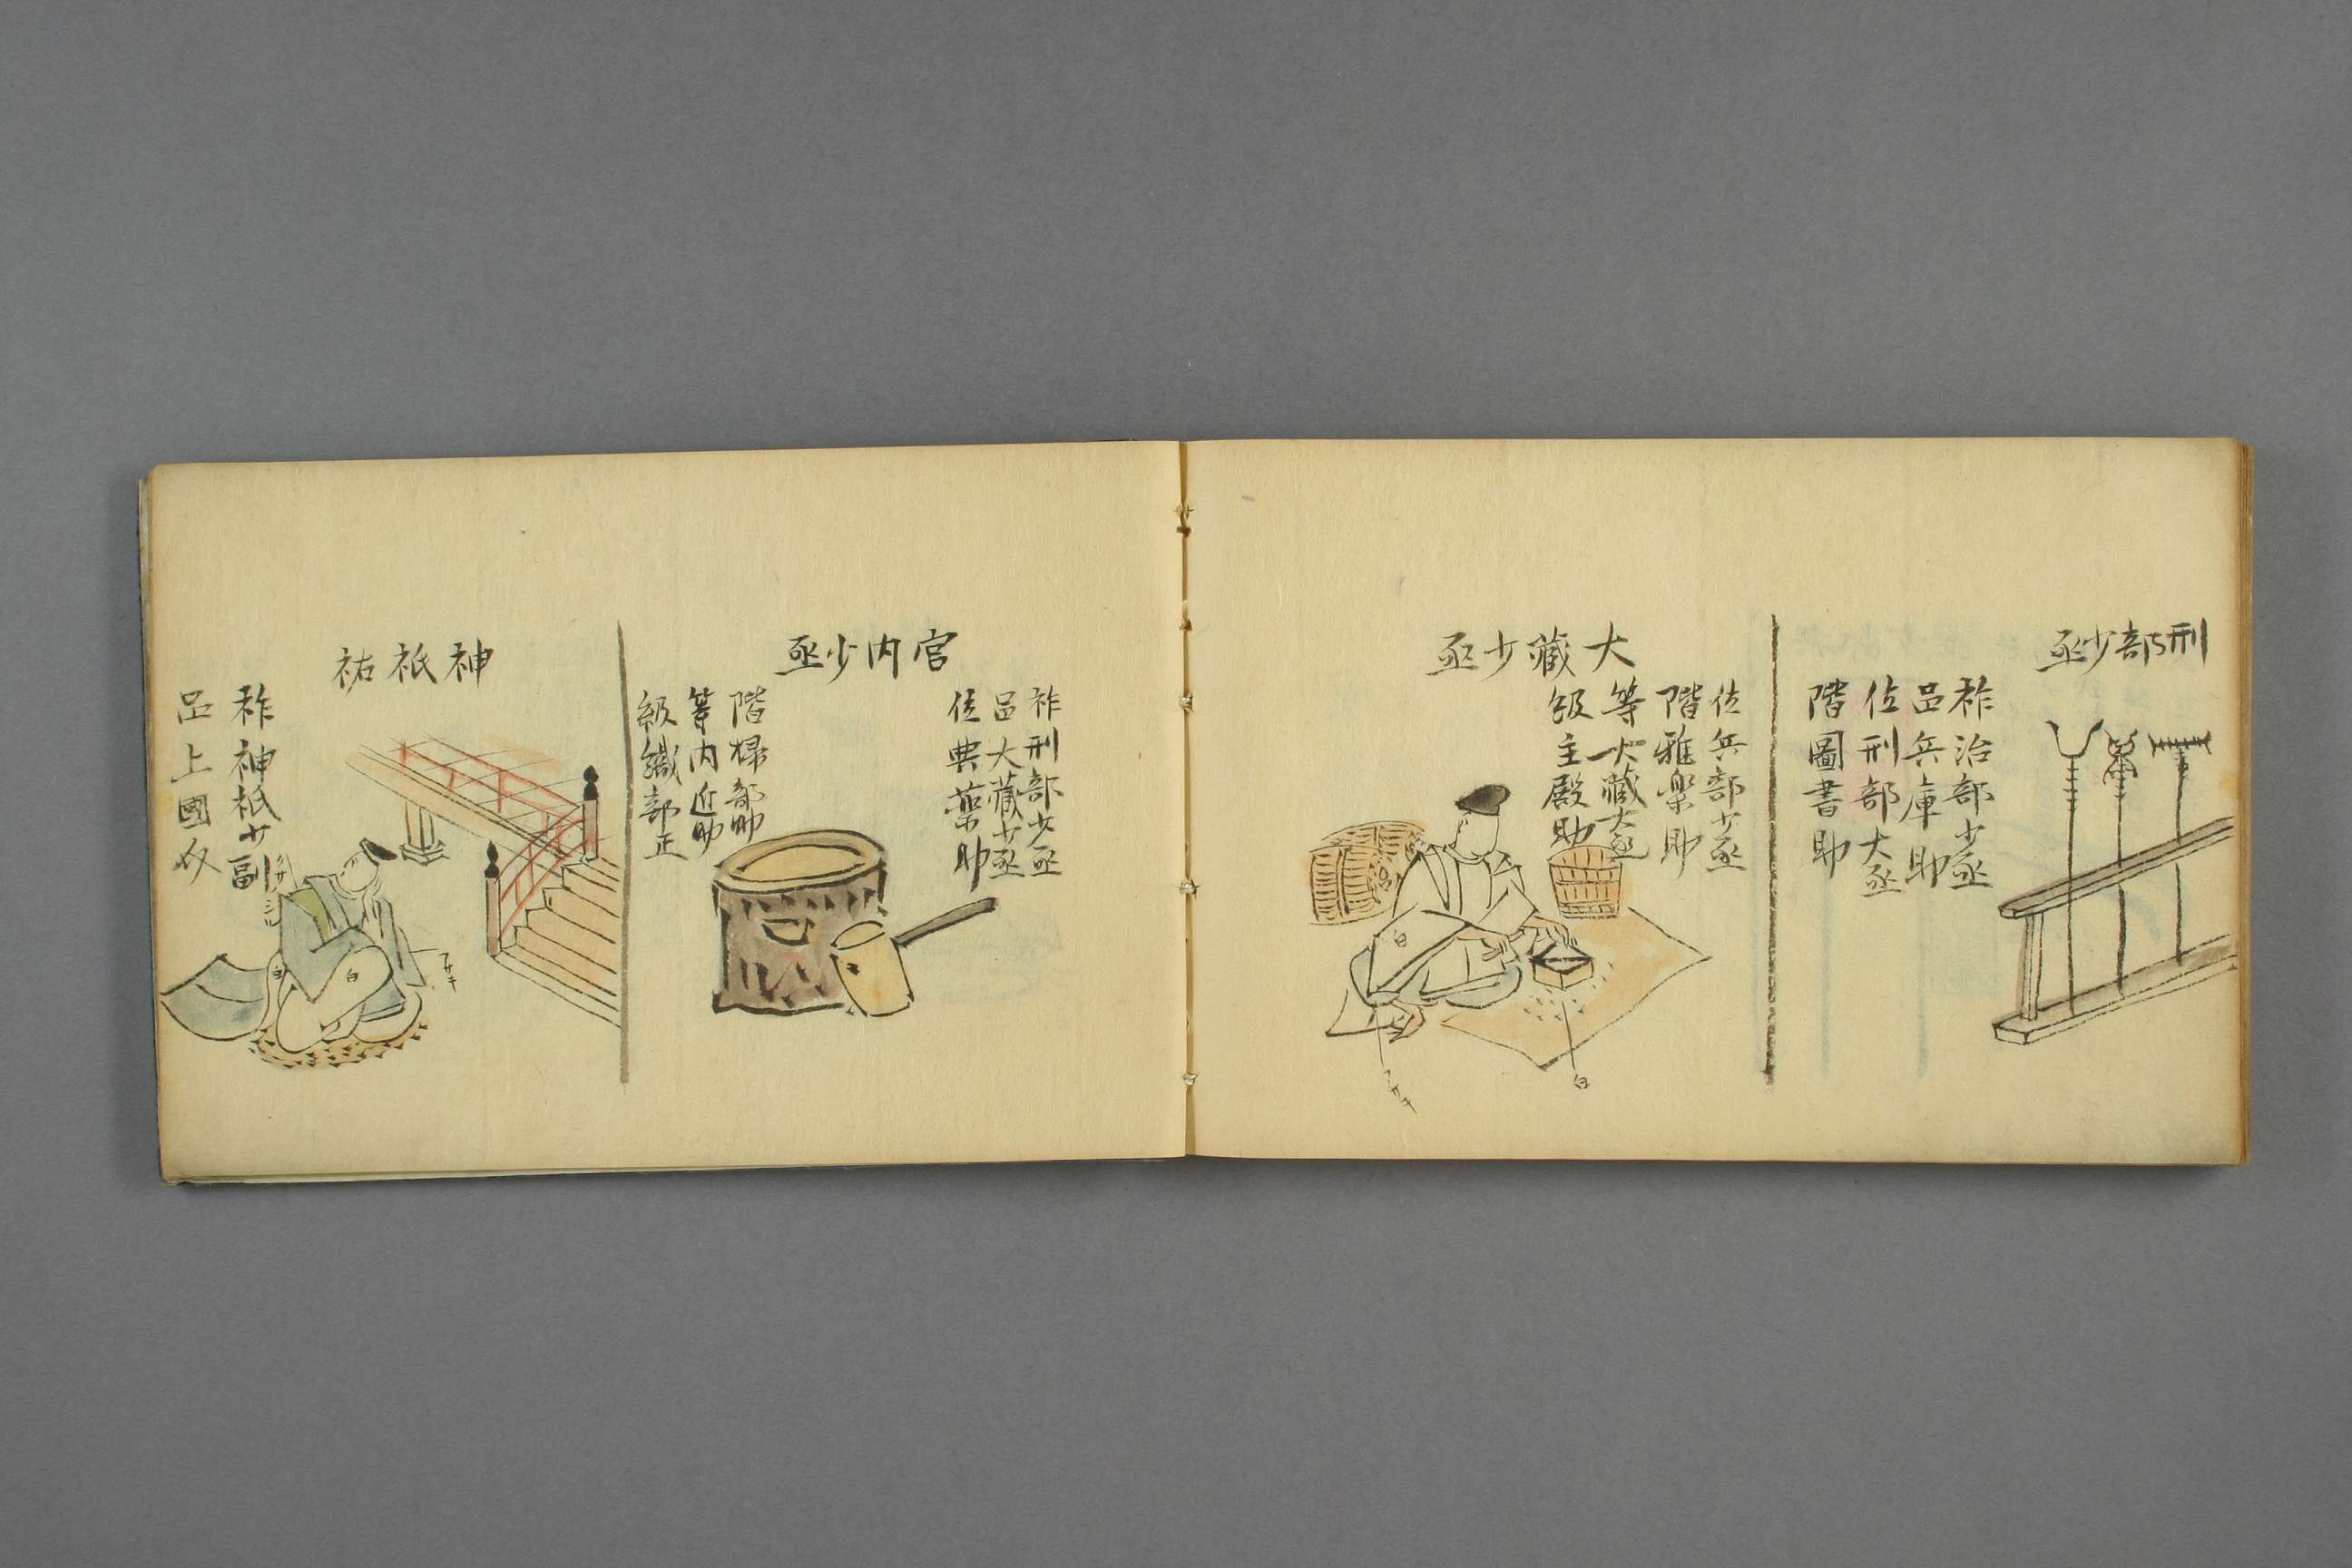 刑部少丞
祚治部少丞
品兵庫助
位刑部大丞
階圖書助
大藏少丞
位兵部少丞
階雅楽助
等大藏大丞
級主殿助
白
アサキ
白
宮内少丞
祚刑部少丞
品大藏少丞
位典薬助
階掃部助
等内匠助
級織部正
神祇祐
祚神祇少副
品上國介
白
白
アサキ